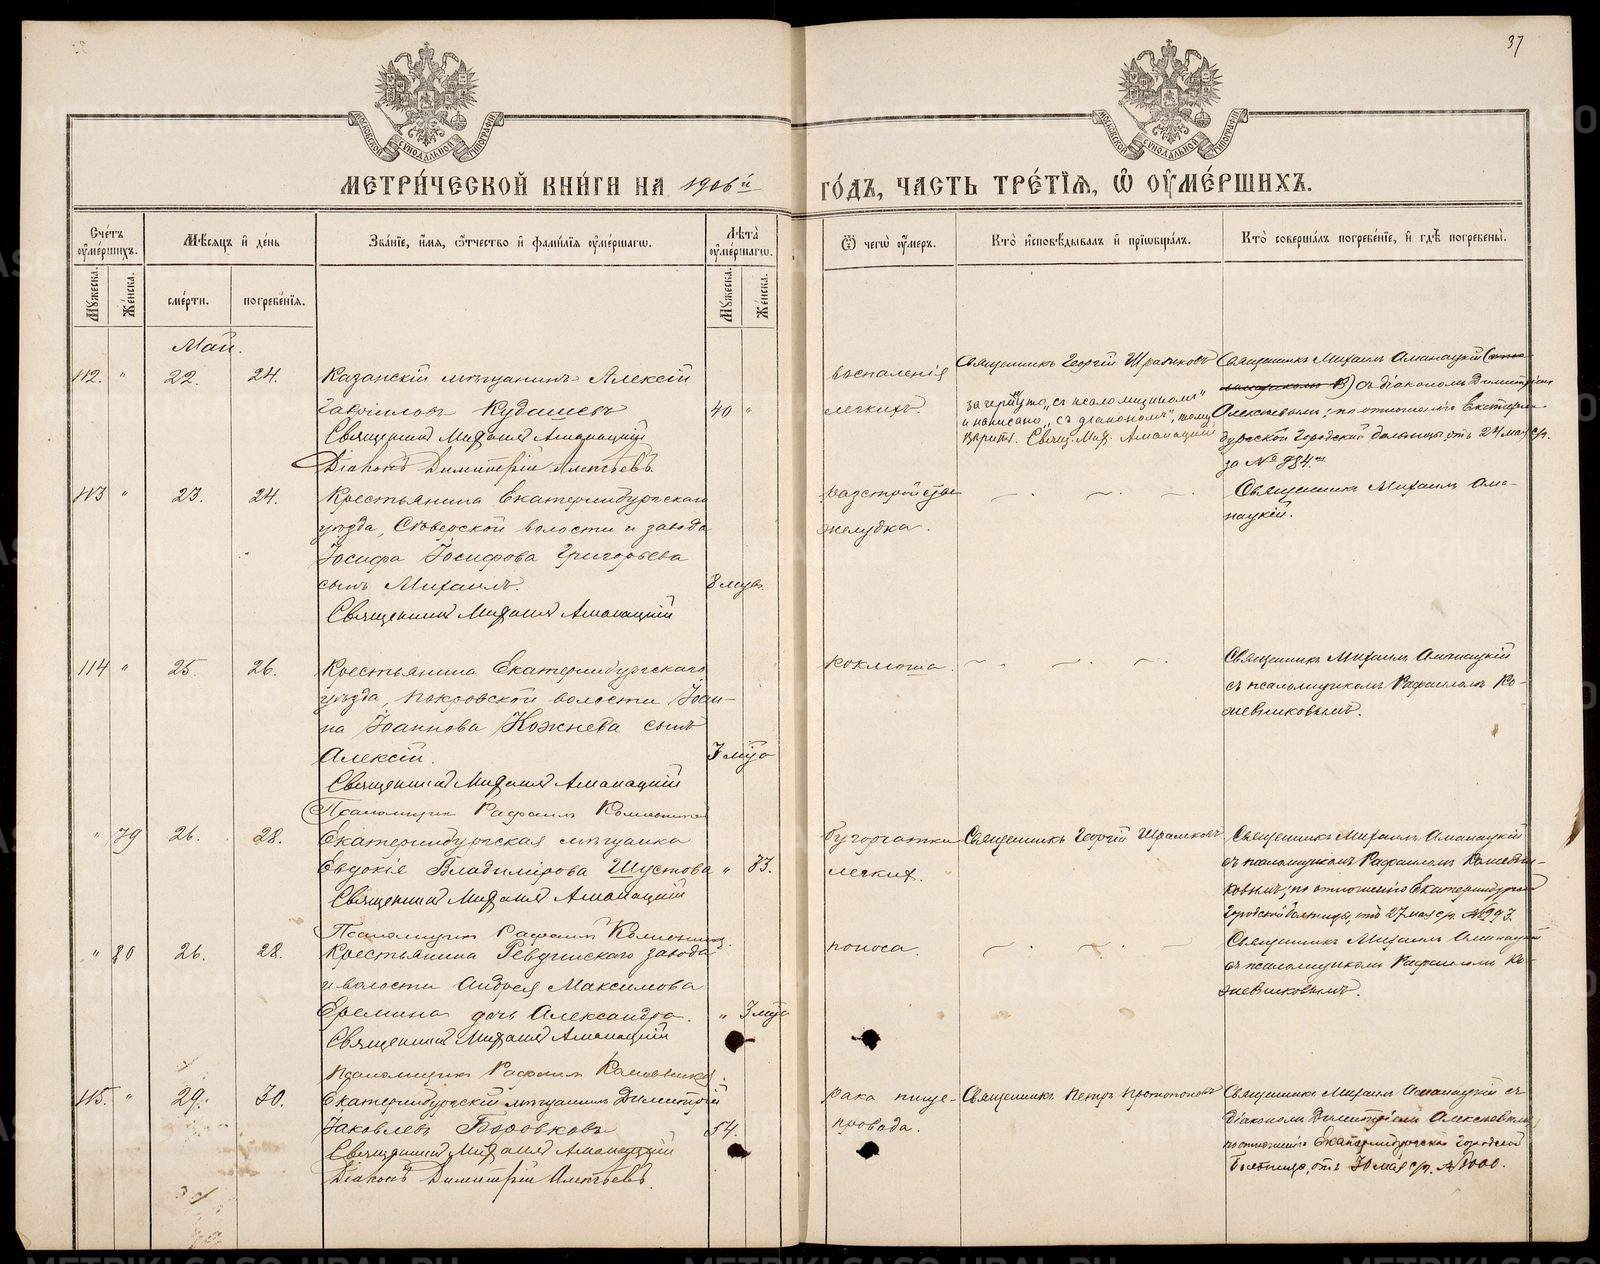 37
МЕТРИ́ЧЕСКОЙ КНИ́ГИ НА 1906й ГО́ДЪ, ЧАСТЬ ТРЕ́ТІѦ, Ѿ ОУМЕ́РШИХЪ.
Сче́тъ оуме́ршихъ.
Мѣсѧцъ и де́нь
Зва́нїе, и́мѧ, ѻ́тчество и фами́лїѧ оуме́ршагѡ.
Лѣта̀ оуме́ршагѡ.
Ѿ чегѡ̀ оу́меръ.
Кто̀ и҆сповѣ́дывалъ и прїѡбща́лъ.
Кто̀ соверша́лъ погребе́нїе, и гдѣ̀ погребены̀.
Мꙋ́жеска.
Же́нска.
сме́рти.
погребе́нїѧ.
Мꙋ́жеска.
Же́нска.
Май.
112. " 22. 24. Казанскій мѣщанинъ Алексій
Гавріиловъ Кудашевъ 40 "
Священникъ Михаилъ Аманацкій
Діаконъ Димитрій Алексѣевъ
воспаленія
легкихъ.
Священникъ Георгій
зачеркнуто „съ псаломщикомъ"
и написано „съ діакономъ", тому
вѣрить. Свящ. Мих. Аманацкій
Священникъ Михаилъ Аманацкій
съ діакономъ Димитріемъ
Алексѣевымъ; по отношенію Екатерин-
бургской Городской больницы отъ 24 мая с/г.
за № 984.
113 " 23. 24. Крестьянина Екатеринбургскаго
уѣзда, Сѣверской волости и завода
Іосифа Іосифова Григорьева
сынъ Михаилъ. 8 мѣс.
Священникъ Михаилъ Аманацкій
разстройства
желудка.
Священникъ Михаилъ Ама-
нацкій.
114 " 25. 26. Крестьянина Екатеринбургскаго
уѣзда, Покровской волости Іоан-
на Іоаннова Кожнева сынъ
Алексій.
Священникъ Михаилъ Аманацкій
Псаломщикъ Рафаилъ
коклюша.
Священникъ Михаилъ Аманацкій
съ псаломщикомъ Рафаиломъ Ко-
жевниковымъ.
" 79 26. 28. Екатеринбургская мѣщанка
Евдокія Владимірова Шустова " 33.
Священникъ Михаилъ Аманацкій
Псаломщикъ Рафаилъ
бугорчатки
легких.
Священникъ Георгій
Священникъ Михаилъ Аманацкій
съ псаломщикомъ Рафаиломъ Кожевни-
ковымъ; по отношенію Екатеринбургской
Городской больницы, отъ 27 мая с/г. № 993.
" 80 26. 28. Крестьянина Ревдинскаго завода
и волости Андрея Максимова
Еремина дочь Александра. " 3 мѣс
Священникъ Михаилъ Аманацкій
Псаломщикъ Рафаилъ
поноса.
Священникъ Михаилъ Аманацкій
съ псаломщикомъ Рафаиломъ Ко-
жевниковымъ.
115. " 29. 30. Екатеринбургскій мѣщанинъ Димитрій
Іаковлевъ Боровковъ 54.
Священникъ Михаилъ Аманацкій
Діаконъ Димитрій Алексѣевъ
рака пище-
провода.
Священникъ Петръ Протопоповъ
Священникъ Михаилъ Аманацкій съ
Діакономъ Димитріемъ Алексѣевымъ,
по отношенію Екатеринбургской Городской
больницы, отъ 30 мая с/г. № 1000.
METRIKI.GASO-URAL.RU